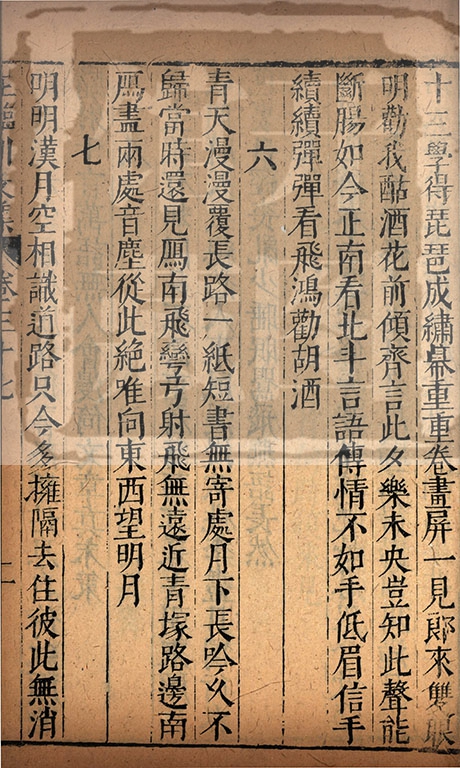 十三學得琵琶成繡幕重重卷畫屏一見郎來雙眼
明勸我酤酒花前傾齊言此夕樂未央豈知此聲能
斷腸如今正南看北斗言語傳情不如手低眉信手
續續彈彈看飛鴻勸胡酒
六
青天漫漫覆長路一紙短書無寄處月下長吟久不
歸當時還見鴈南飛彎弓射飛無遠近青塚路邊南
鴈盡兩處音塵從此絕唯向東西望明月
七
明明漢月空相識道路只今多擁隔去住彼此無消